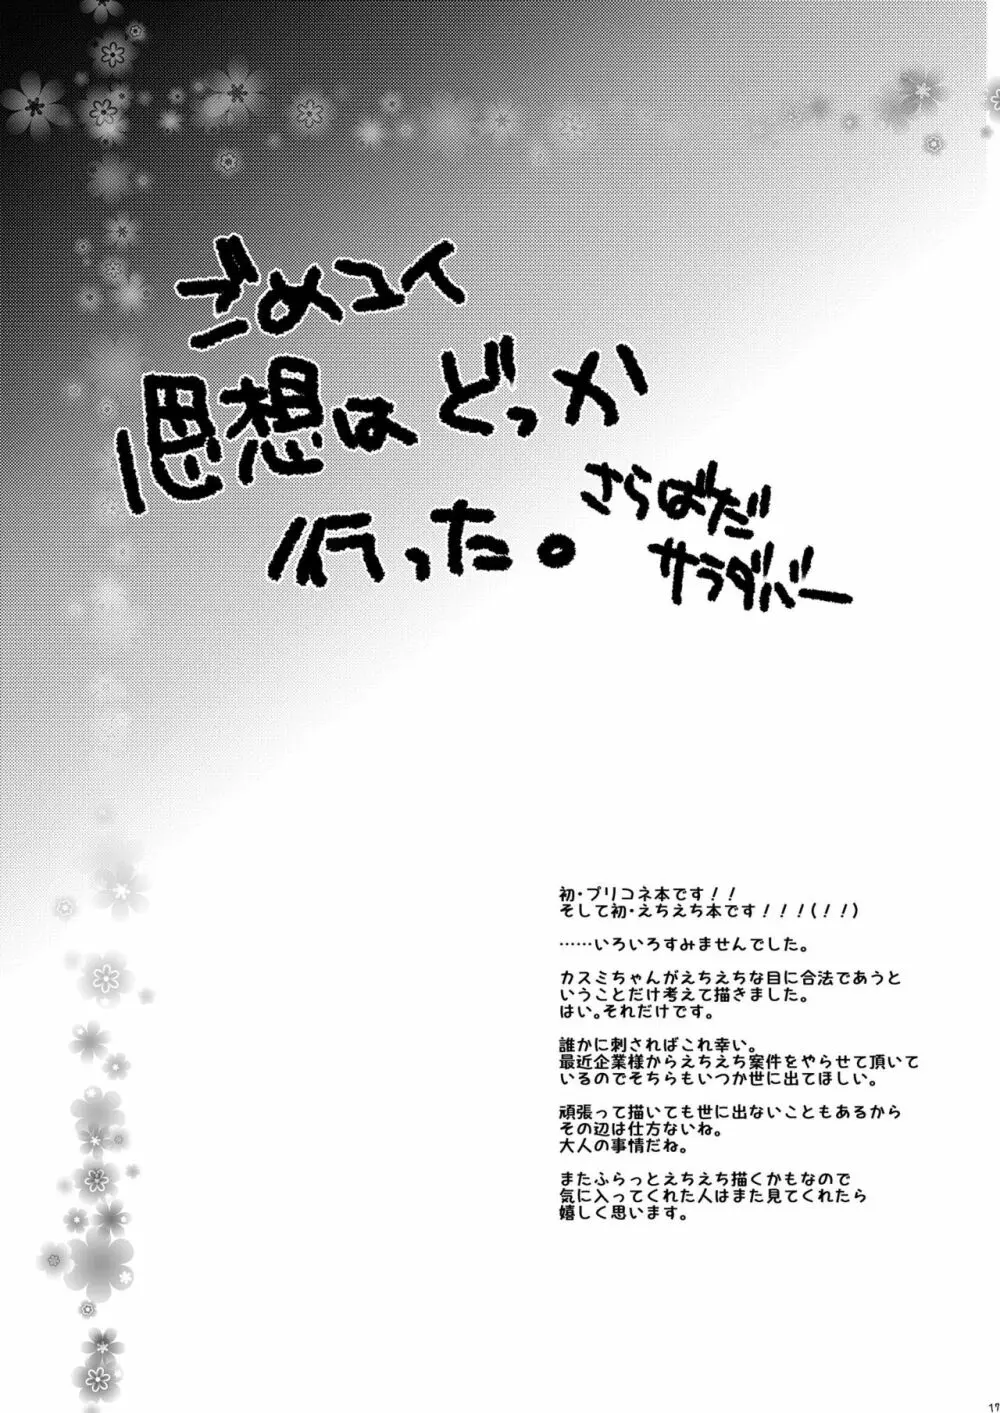 ごめユイ
思想はどっか
行った。
さらばだ
サラダバー
初・プリコネ本です！！
そして初・えちえち本です！！！(！！)
……いろいろすみませんでした。
カスミちゃんがえちえちな目に合法であうと
いうことだけ考えて描きました。
はい。それだけです。
誰かに刺さればこれ幸い。
最近企業様からえちえち案件をやらせて頂いて
いるのでそちらもいつか世に出てほしい。
頑張って描いても世に出ないこともあるから
その辺は仕方ないね。
大人の事情だね。
またふらっとえちえち描くかもなので
気に入ってくれた人はまた見てくれたら
嬉しく思います。
17